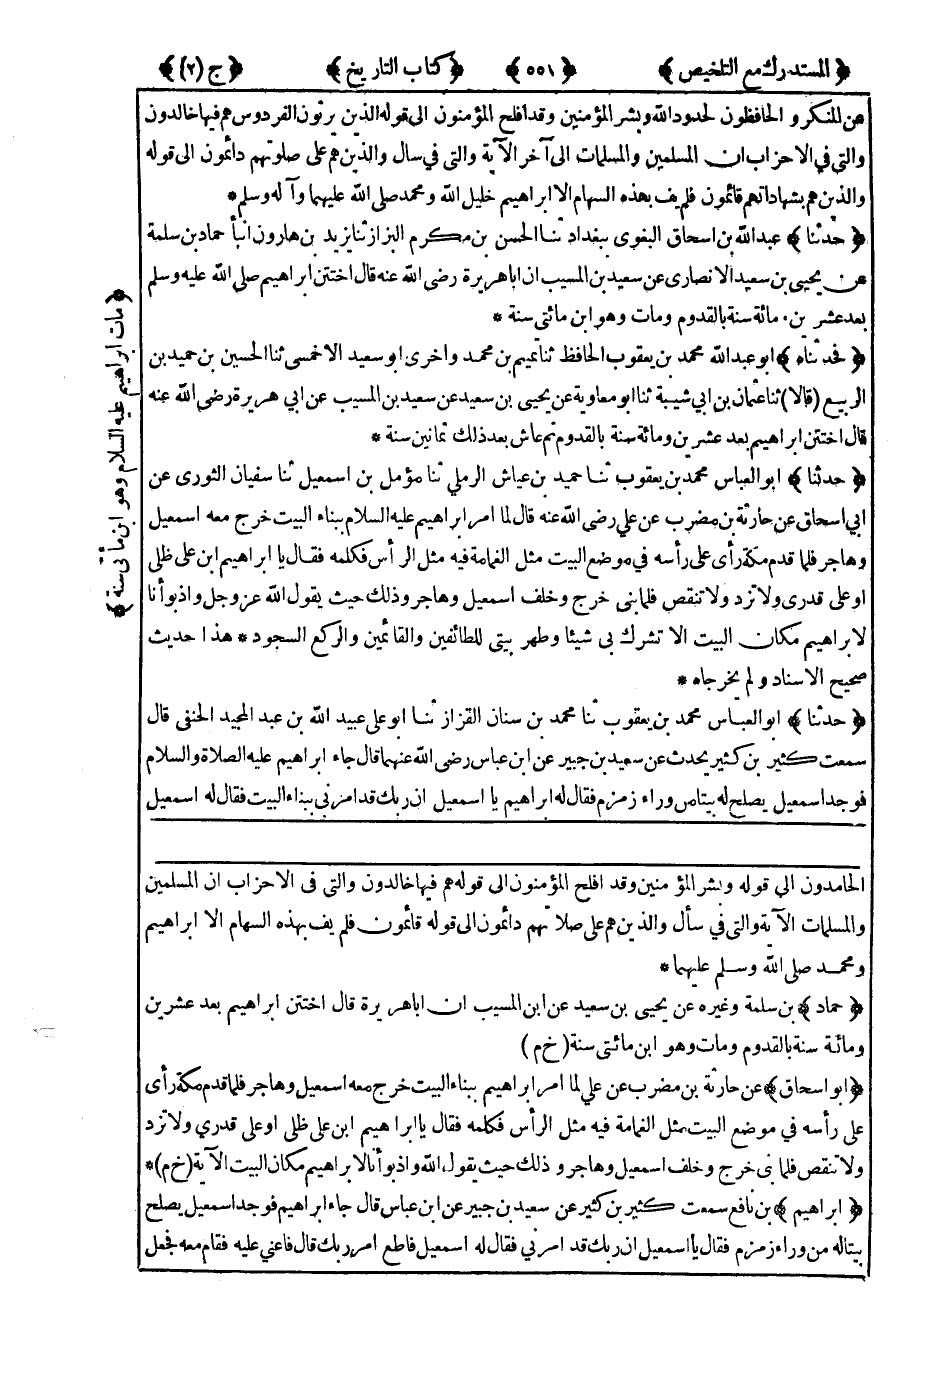 ﴿المستدرك مع التلخيص﴾ ﴿٥٥١﴾ ﴿كتاب التاريخ﴾ ﴿ج (٢)﴾
عن المنكر و الحافظون لحدود الله وبشر المؤمنين وقد افلح المؤمنون الى قوله الذين يرثون الفردوس هم فيها خالدون
والتى فى الاحزاب ان المسلمين والمسلمات الى آخر الآية والتى فى سال والذين هم على صلوتهم دائمون الى قوله
والذين هم بشهاداتهم قائمون فلم يف بهذه السهام الا ابراهيم خليل الله ومحمد صلى الله عليهما وآله وسلم *
﴿ حدثنا ﴾ عبدالله بن اسحاق البغوى ببغداد ثنا الحسن بن مكرم البزاز ثنا يزيد بن هارون انبأ حماد بن سلمة
عن يحيى بن سعيد الانصارى عن سعيد بن المسيب ان اباهريرة رضى الله عنه قال اختتن ابراهيم صلى الله عليه وسلم
بعد عشرين ومائة سنة بالقدوم ومات وهو ابن مائتى سنة *
﴿ فحدثناه ﴾ ابو عبدالله محمد بن يعقوب الحافظ ثنا تميم بن محمد واخرى ابو سعيد الاخمسى ثنا الحسين بن حميد بن
الربيع (قالا) ثنا عثمان بن ابي شيبة ثنا ابو معاوية عن يحيى بن سعيد عن سعيد بن المسيب عن ابي هريرة رضى الله عنه
قال اختتن ابراهيم بعد عشرين ومائة سنة بالقدوم ثم عاش بعد ذلك ثمانين سنة *
﴿ حدثنا ﴾ ابوالعباس محمد بن يعقوب ثنا حميد بن عياش الرملي ثنا مؤمل بن اسمعيل ثنا سفيان الثورى عن
ابي اسحاق عن حارثة بن مضرب عن علي رضى الله عنه قال لما امر ابراهيم عليه السلام ببناء البيت خرج معه اسمعيل
وهاجر فلما قدم مكة رأى على رأسه فى موضع البيت مثل الغمامة فيه مثل الرأس فكلمه فقال يا ابراهيم ابن على ظلى
او على قدرى ولا تزد ولا تنقص فلما بنى خرج وخلف اسمعيل وهاجر وذلك حيث يقول الله عز وجل واذ بوأنا
لابراهيم مكان البيت الا تشرك بى شيئا وطهر بيتى للطائفين والقائمين والركع السجود * هذا حديث
صحيح الاسناد ولم يخرجاه *
﴿ حدثنا ﴾ ابوالعباس محمد بن يعقوب ثنا محمد بن سنان القزاز ثنا ابوعلى عبيد الله بن عبد المجيد الحنفى قال
سمعت كثير بن كثير يحدث عن سعيد بن جبير عن ابن عباس رضى الله عنهما قال جاء ابراهيم عليه الصلاة والسلام
فوجد اسمعيل يصلح له بيتا من وراء زمزم فقال له ابراهيم يا اسمعيل ان ربك قد امرنى ببناء البيت فقال له اسمعيل
﴿ مات ابراهيم عليه السلام وهو ابن مأتى سنة ﴾
الحامدون الى قوله وبشر المؤمنين وقد افلح المؤمنون الى قوله هم فيها خالدون والتى فى الاحزاب ان المسلمين
والمسلمات الآية والتى فى سأل والذين هم على صلاتهم دائمون الى قوله قائمون فلم يف بهذه السهام الا ابراهيم
ومحمد صلى الله وسلم عليهما *
﴿ حماد ﴾ بن سلمة وغيره عن يحيى بن سعيد عن ابن المسيب ان اباهريرة قال اختتن ابراهيم بعد عشرين
ومائة سنة بالقدوم ومات وهو ابن مائتى سنة (خ م)
﴿ ابو اسحاق ﴾ عن حارثة بن مضرب عن علي لما امر ابراهيم ببناء البيت خرج معه اسمعيل وهاجر فلما قدم مكة رأى
على رأسه فى موضع البيت مثل الغمامة فيه مثل الرأس فكلمه فقال يا ابراهيم ابن على ظلى او على قدري ولا تزد
ولا تنقص فلما بنى خرج وخلف اسمعيل وهاجر وذلك حيث يقول الله واذ بوأنا لابراهيم مكان البيت الآية (خ م) *
﴿ ابراهيم ﴾ بن نافع سمعت كثير بن كثير عن سعيد بن جبير عن ابن عباس قال جاء ابراهيم فوجد اسمعيل يصلح
بيتا له من وراء زمزم فقال يا اسمعيل ان ربك قد امرنى فقال له اسمعيل فاطع امر ربك قال فاعني عليه فقام معه فجعل